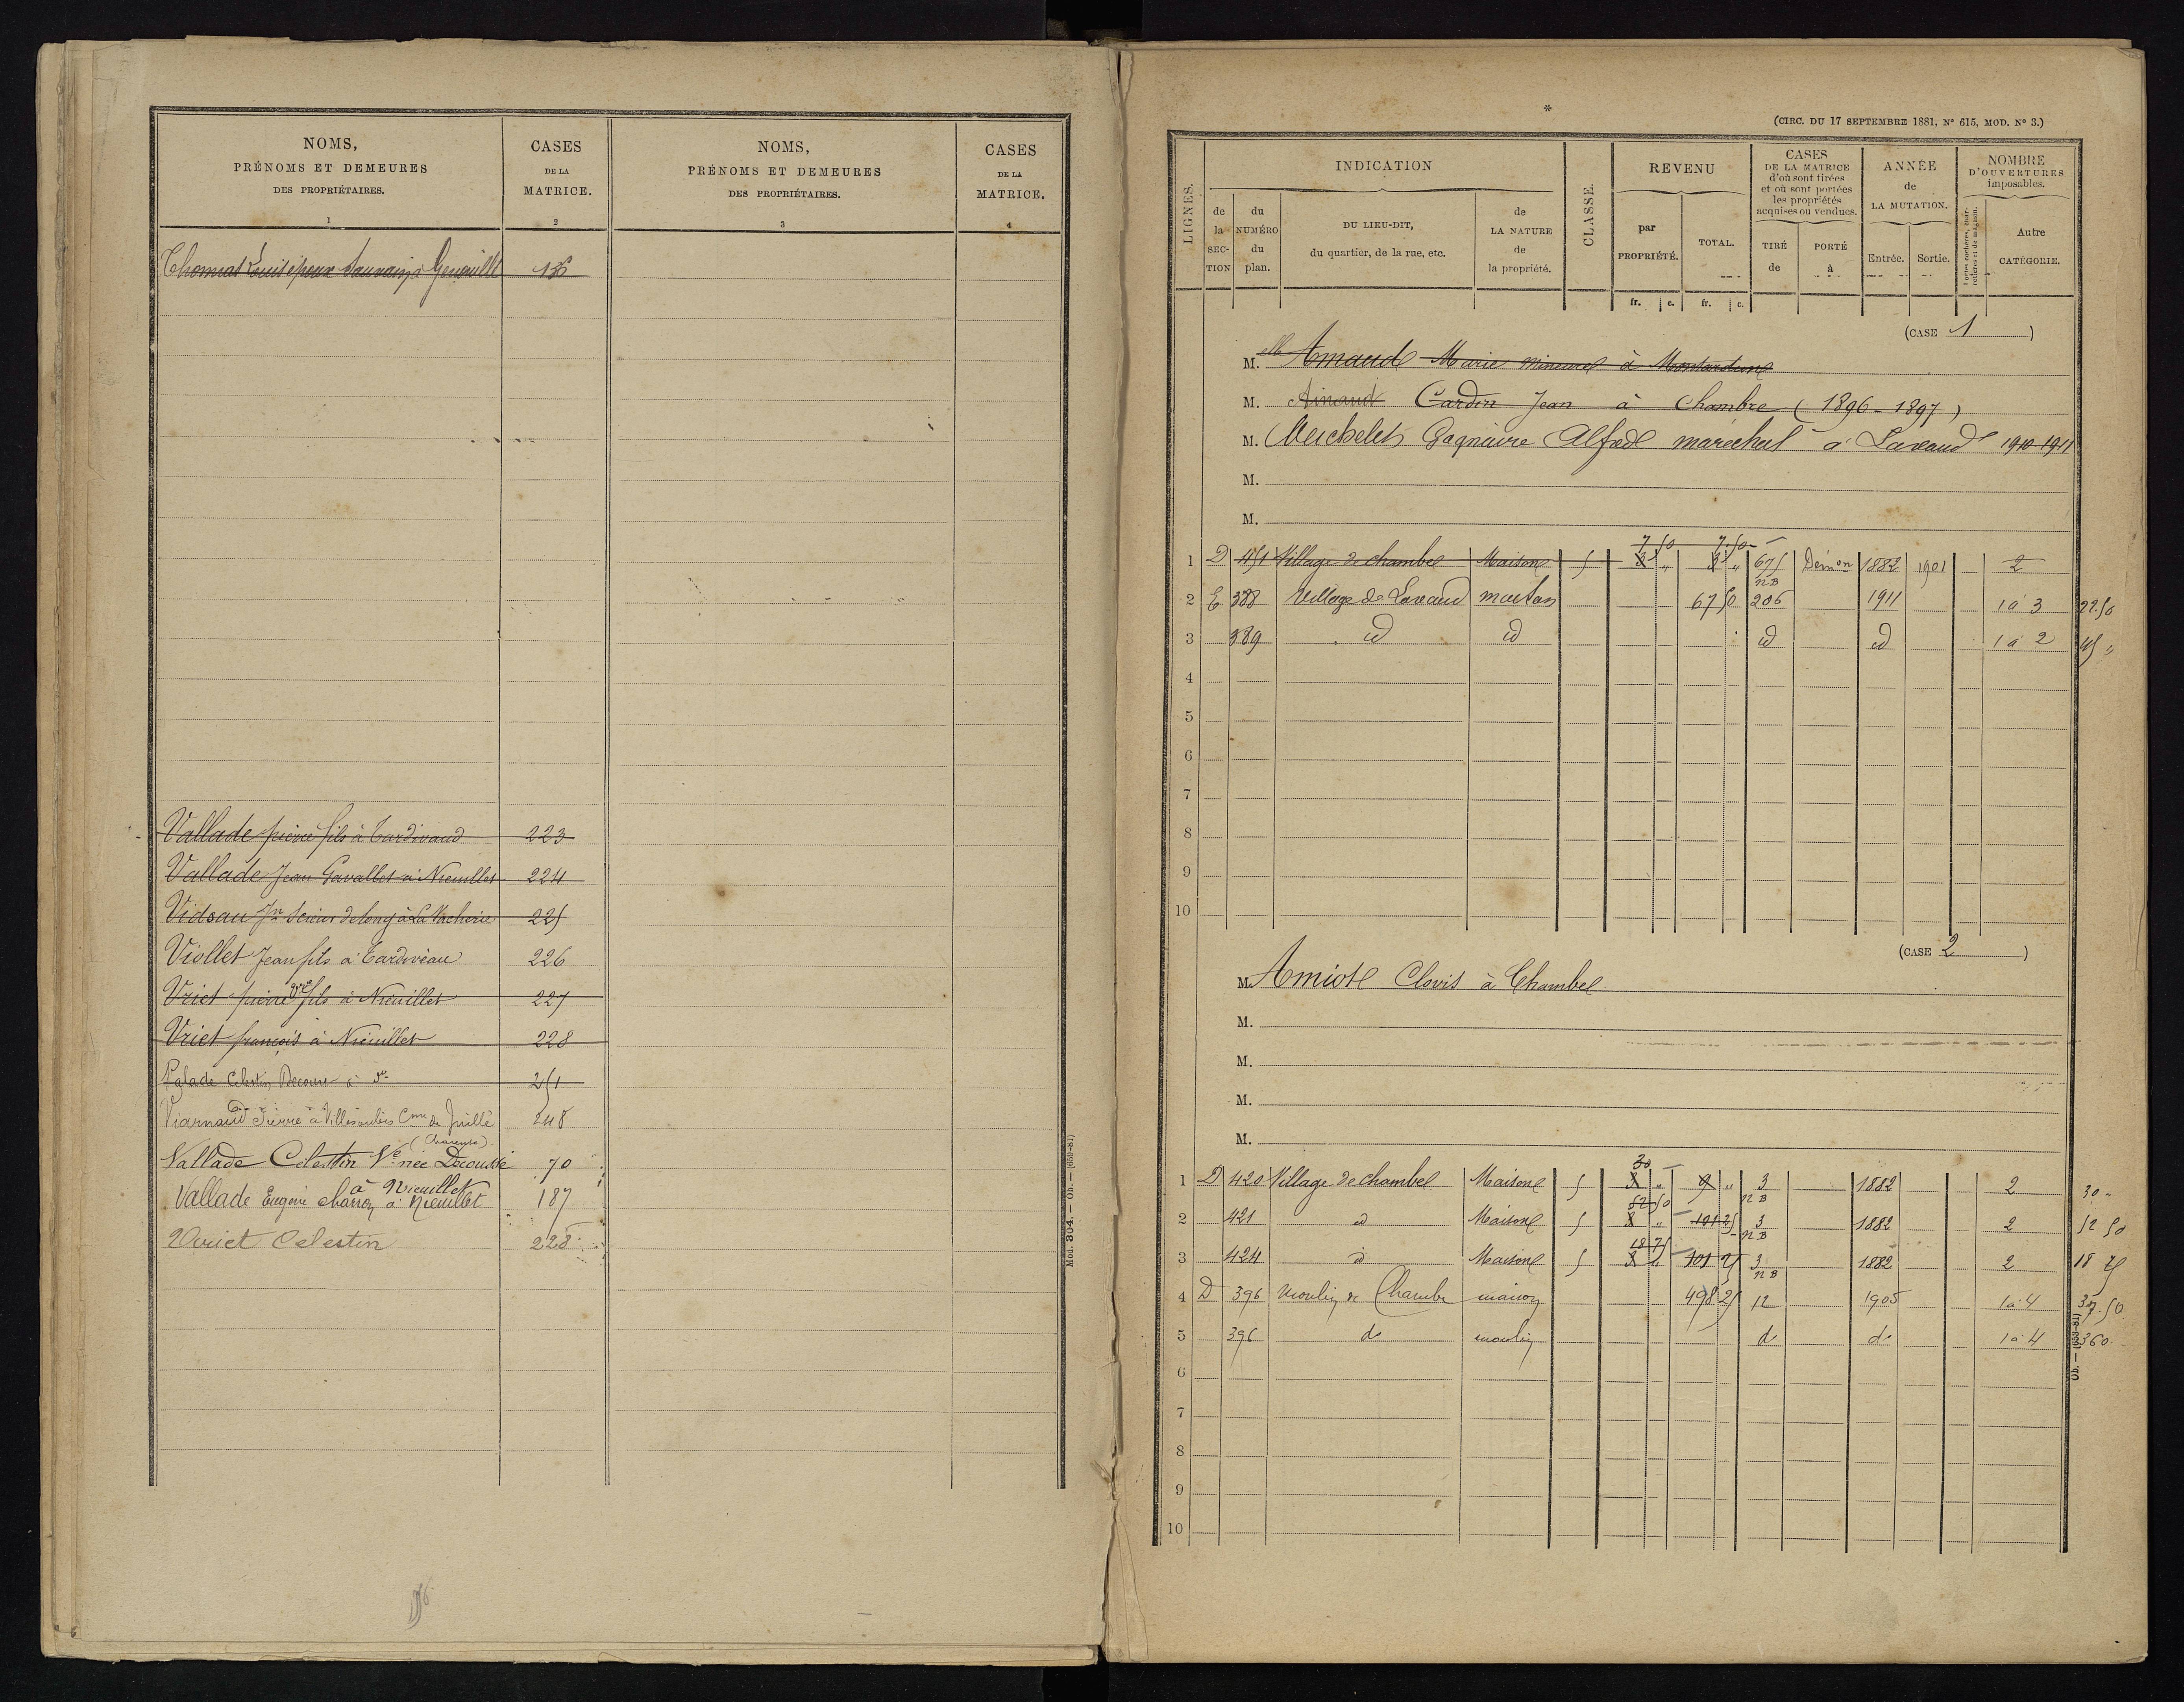 NOMS, PRÉNOMS ET DEMEURES DES PROPRIÉTAIRES. CASES DE LA MATRICE. NOMS, PRÉNOMS ET DEMEURES DES PROPRIÉTAIRES. CASES DE LA MATRICE.
1 2 3 4
Thomas Louis époux Sauvaing à Genouillé 136
Vallade pierre fils à Tardivaud 223
Vallade Jean Gavallet à Nieuillet 224
Vidsau Jn Scieur de long à La Vacherie 225
Viollet Jean fils à Tardiveau 226
Vriet pierre fils à Nieuillet 227
Vriet françois à Nieuillet 228
Celestin à 251
Viarnaud Pierre à Cne de Juillé 248
(Charente)
Vallade Celestin Ve née Decousse 70
à Nieuillet
Vallade Eugène charron à Nieuillet 187
Vriet Celestin 228
Mod. 304. — Ob. — (659-81)
*
(CIRC. DU 17 SEPTEMBRE 1881, No 615, MOD. No 3.)
LIGNES. INDICATION CLASSE. REVENU CASES DE LA MATRICE d'où sont tirées et où sont portées les propriétés acquises ou vendues. ANNÉE de LA MUTATION. NOMBRE D'OUVERTURES imposables.
de la SECTION du NUMÉRO du plan. DU LIEU-DIT, du quartier, de la rue, etc. de LA NATURE de la propriété. par PROPRIÉTÉ. TOTAL. TIRÉ de PORTÉ à Entrée. Sortie. Autre CATÉGORIE.
fr. c. fr. c.
(CASE 1)
M. elle Amaud Marie mineure à
M. Amaud Cardin Jean à Chambre (1896-1897)
M. Meichelet Alfred maréchal à Lavaud 1910-1911
M.
M.
7 50 7.50
1 D 451 Village de chambe Maison 5 3 " 3 " 675 Démon 1882 1901 2
NB
2 E 388 Village de Lavaud 67 50 206 1911 1 à 3 22.50
3 389 id id id id 1 à 2 45 "
4
5
6
7
8
9
10
(CASE 2)
M. Amiot Clovis à Chambe
M.
M.
M.
M.
30
1 D 420 Village de chambe Maison 5 3 " 9 " 3 1882 2 30 "
52 50 NB
2 421 id Maison 5 3 " 101 25 3 1882 2 52 50
18 75 NB
3 424 id Maison 5 3 " 101 25 3 1882 2 18 75
NB
4 D 396 Moulin de Chambe maison 498 25 12 1905 1 à 4 37.50
5 396 do moulin do do 1 à 4 360
6
7
8
9
10
Ob. — (659-81)